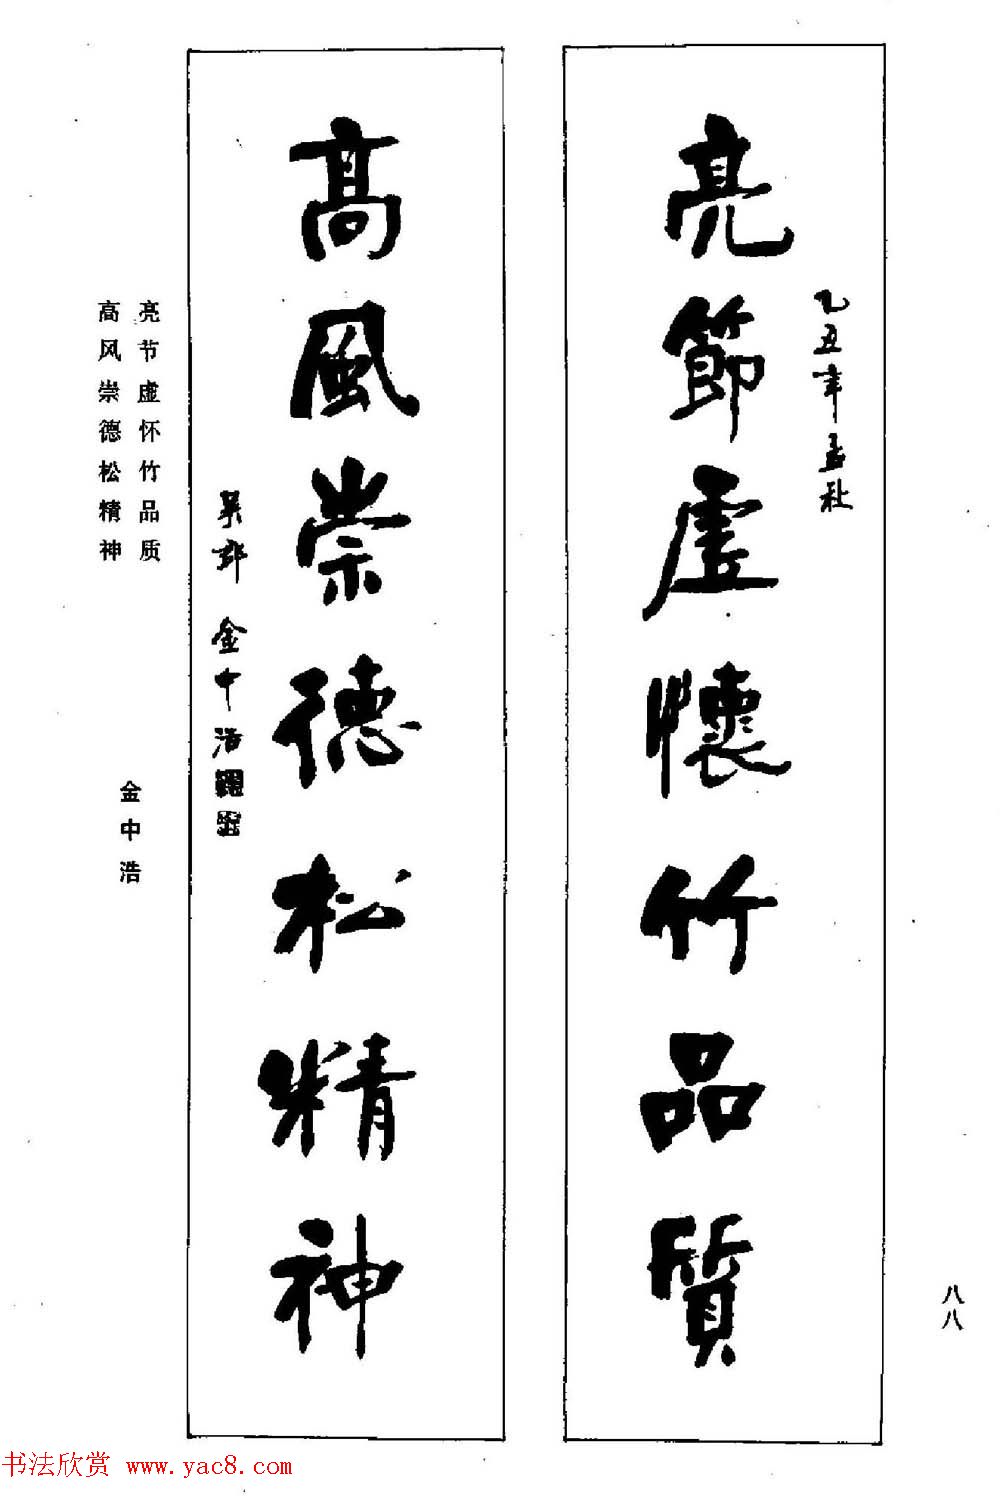 亮節虛懷竹品質
乙丑年孟秋
高風崇德松精神
吴郡金中浩
亮节虚怀竹品质
高风崇德松精神
金中浩
八八
书法欣赏 www.yac8.com